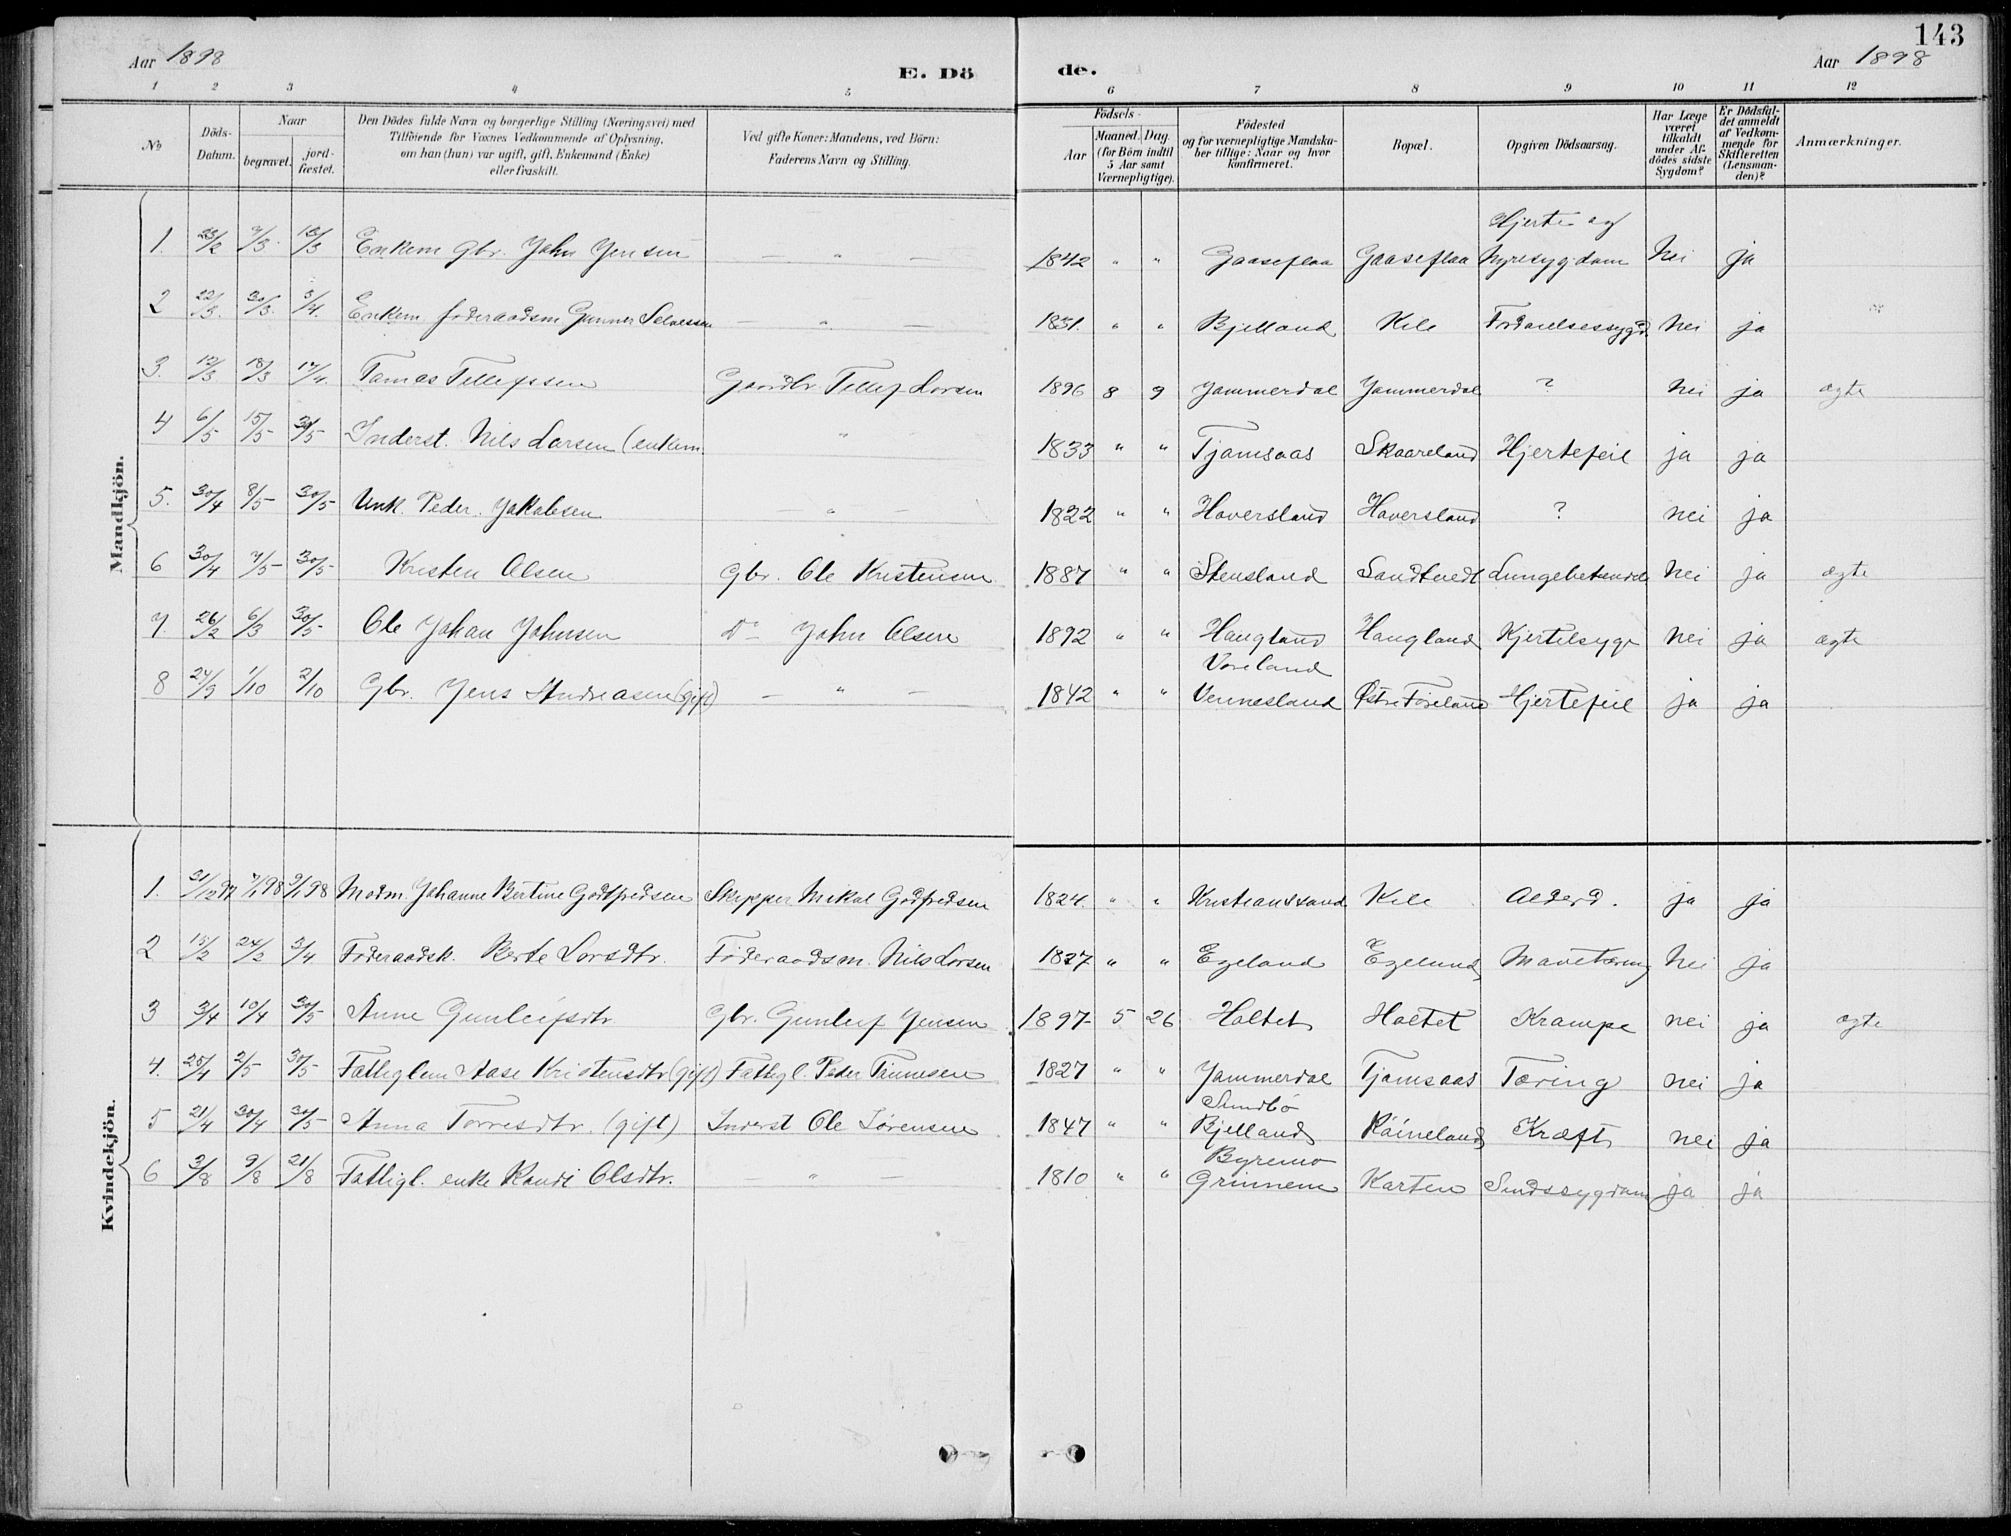 143
Aar 1898
E. Dö
de.
Aar 1898
1 2 3 4 5 6 7 8 9 10 11 12
№
Döds-Datum.
Naar
begravet.
jord-fæstet.
Den Dödes fulde Navn og borgerlige Stilling (Næringsvei) med
Tilföiende for Voxnes Vedkommende af Oplysning,
om han (hun) var ugift, gift, Enkemand (Enke)
eller fraskilt.
Ved gifte Koner: Mandens, ved Börn:
Faderens Navn og Stilling.
Födsels-
Aar
Maaned. Dag.
(for Börn indtil
5 Aar samt
Værnepligtige).
Födested
og for værnepligtige Mandska-
ber tillige: Naar og hvor
konfirmeret.
Bopæl.
Opgiven Dödsaarsag.
Har Læge
været
tilkaldt
under Af-
dödes sidste
Sygdom?
Er Dödsfal-
det anmeldt
af Vedkom-
mende for
Skifteretten
(Lensman-
den)?
Anmærkninger.
Mandkjön.
1. 23/2 7/3 13/3 Enkem Gbr. John Jensen — " — 1842 " " Gaaseflaa Gaaseflaa Hjerte og Nyresygdom Nei ja
2 22/3 30/3 3/4 Enkem føderaadsm Gunner Selvessen — " — 1831. " " Bjelland Kile Fordøielsessygd. Nei ja
3. 12/3 18/3 17/4 Tomas Tellefssen Gaardbr. Tellef Larsen 1896 8 9 Jammerdal Jammerdal ? Nei ja ægte
4 6/5 15/5 30/5 Inderst. Nils Larsen (enkem. " 1833 " " Tjomsaas Skaareland Hjertefeil ja ja
5. 30/4 8/5 30/5 Unk. Peder Jakobsen " — 1822 " " Haversland Haversland ? nei ja
6 30/4 7/5 30/5 Kristen Olsen Gbr. Ole Kristensen 1887 " " Stensland Sandtvedt Lungebetændel Nei ja ægte
7. 26/2 6/3 30/5 Ole Johan Johnsen Do John Olsen 1892 " " Haugland Haugland Kjertelsyge Nei ja ægte
8 24/9 1/10 2/10 Gbr. Jens Andreasen (gift) — " — 1842 " " Voreland Vennesland Østre Føreland Hjertefeil ja ja
Kvindekjön.
1. 31/12 97 7/1 98 9/1 98 Madm. Johanne Bertine Godtfredsen Skipper Mikal Godfredsen 1824. " " Kristianssand Kile Alderd. ja ja
2 15/2 24/2 3/4 Føderaadsk. Berte Larsdtr. Føderaadsm. Nils Larsen 1827 " " Egeland Egeland Mavetæring Nei ja
3 3/4 10/4 30/5 Anne Gunleifsdtr Gbr. Gunleif Jensen 1897 5 26 Holtet Holtet Krampe nei ja ægte
4. 25/4 2/5 30/5 Fattiglem Aase Kristensdtr (gift) Fattigl. Peder Tønnesen 1827 " " Jammerdal Tjomsaas Tæring nei ja
5 21/4 30/4 30/5 Anna Torresdtr. (gift) Inderst Ole Sørensen 1847 " " Sundbø Bjelland Røineland Kræft nei ja
6 3/8 9/8 21/8 Fattigl. enke Randi Olsdtr. — " — 1810 " " Byremo Grinnem Karten Sindssygdom ja ja